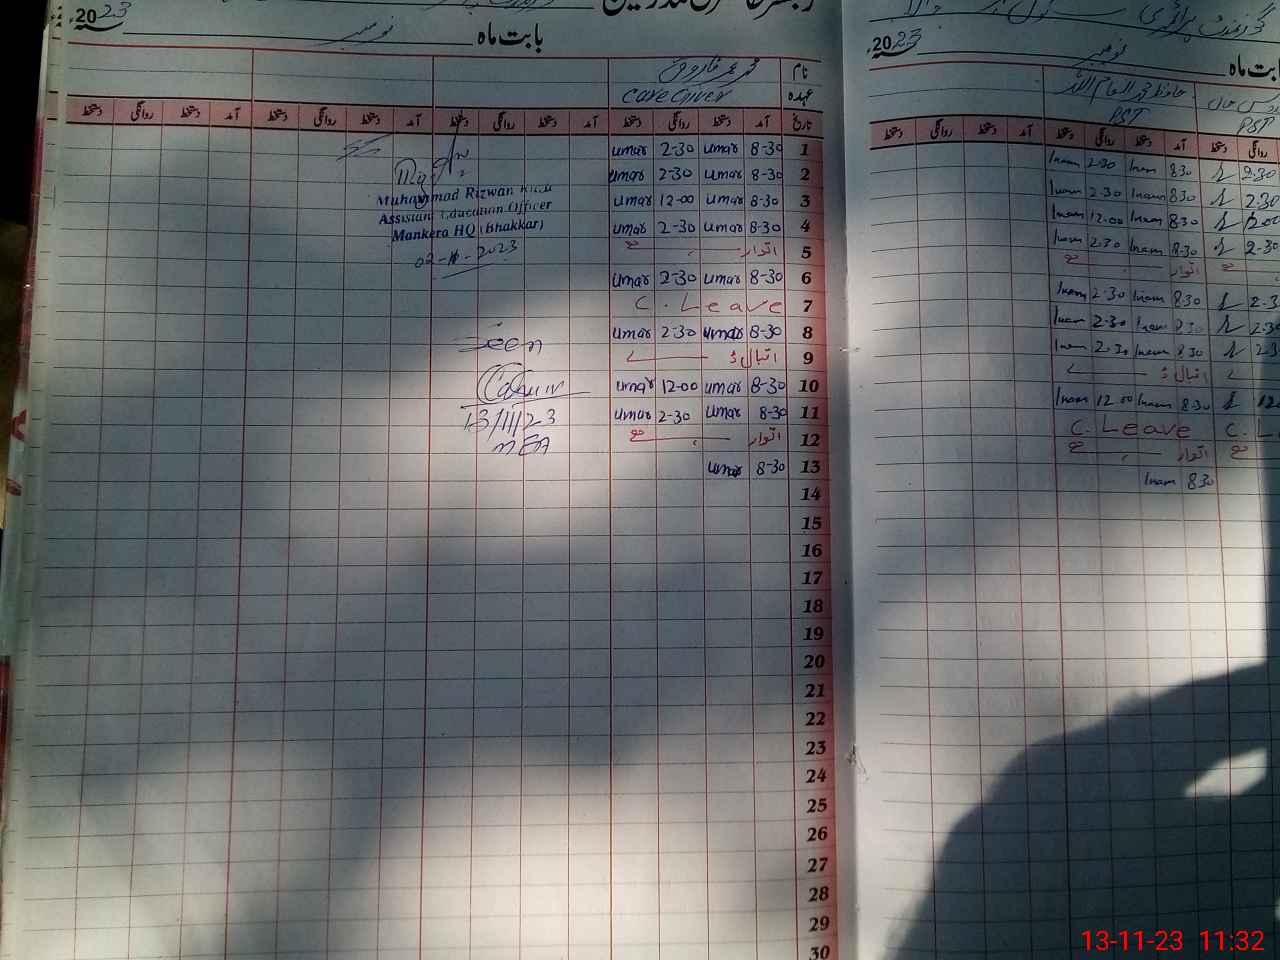 رجسٹر حاضری مدرسین
بابت ماہ نومبر 2023
نام محمد عمر فاروق
عہدہ Care Giver
تاریخ آمد دستخط روانگی دستخط آمد دستخط روانگی دستخط آمد دستخط روانگی دستخط آمد دستخط روانگی دستخط
1 8-30 umar 2-30 umar
2 8-30 umar 2-30 umar
3 8-30 umar 12-00 umar
4 8-30 umar 2-30 umar
5 اتوار
6 8-30 umar 2-30 umar
7 C. Leave
8 8-30 umar 2-30 umar
9 اقبال ڈے
10 8-30 umar 12-00 umar
11 8-30 umar 2-30 umar
12 اتوار
13 8-30 umar
14
15
16
17
18
19
20
21
22
23
24
25
26
27
28
29
30
Muhammad Rizwan
Assistant Education Officer
Mankera HQ (Bhakkar)
02-11-2023
Seen
13/11/23
MEA
گورنمنٹ پرائمری سکول
بابت ماہ نومبر 2023
حافظ محمد انعام اللہ
PST PST
روانگی دستخط آمد دستخط روانگی دستخط آمد دستخط روانگی دستخط
2.30 8.30 Inam 2.30 Inam
2.30 8.30 Inam 2.30 Inam
12.00 8.30 Inam 12.00 Inam
2.30 8.30 Inam 2.30 Inam
اتوار
2.30 8.30 Inam 2.30 Inam
2.30 8.30 Inam 2.30 Inam
8.30 Inam 2.30 Inam
اقبال ڈے
12 8.30 Inam 12.00 Inam
C. L C. Leave
اتوار
8.30 Inam
13-11-23 11:32